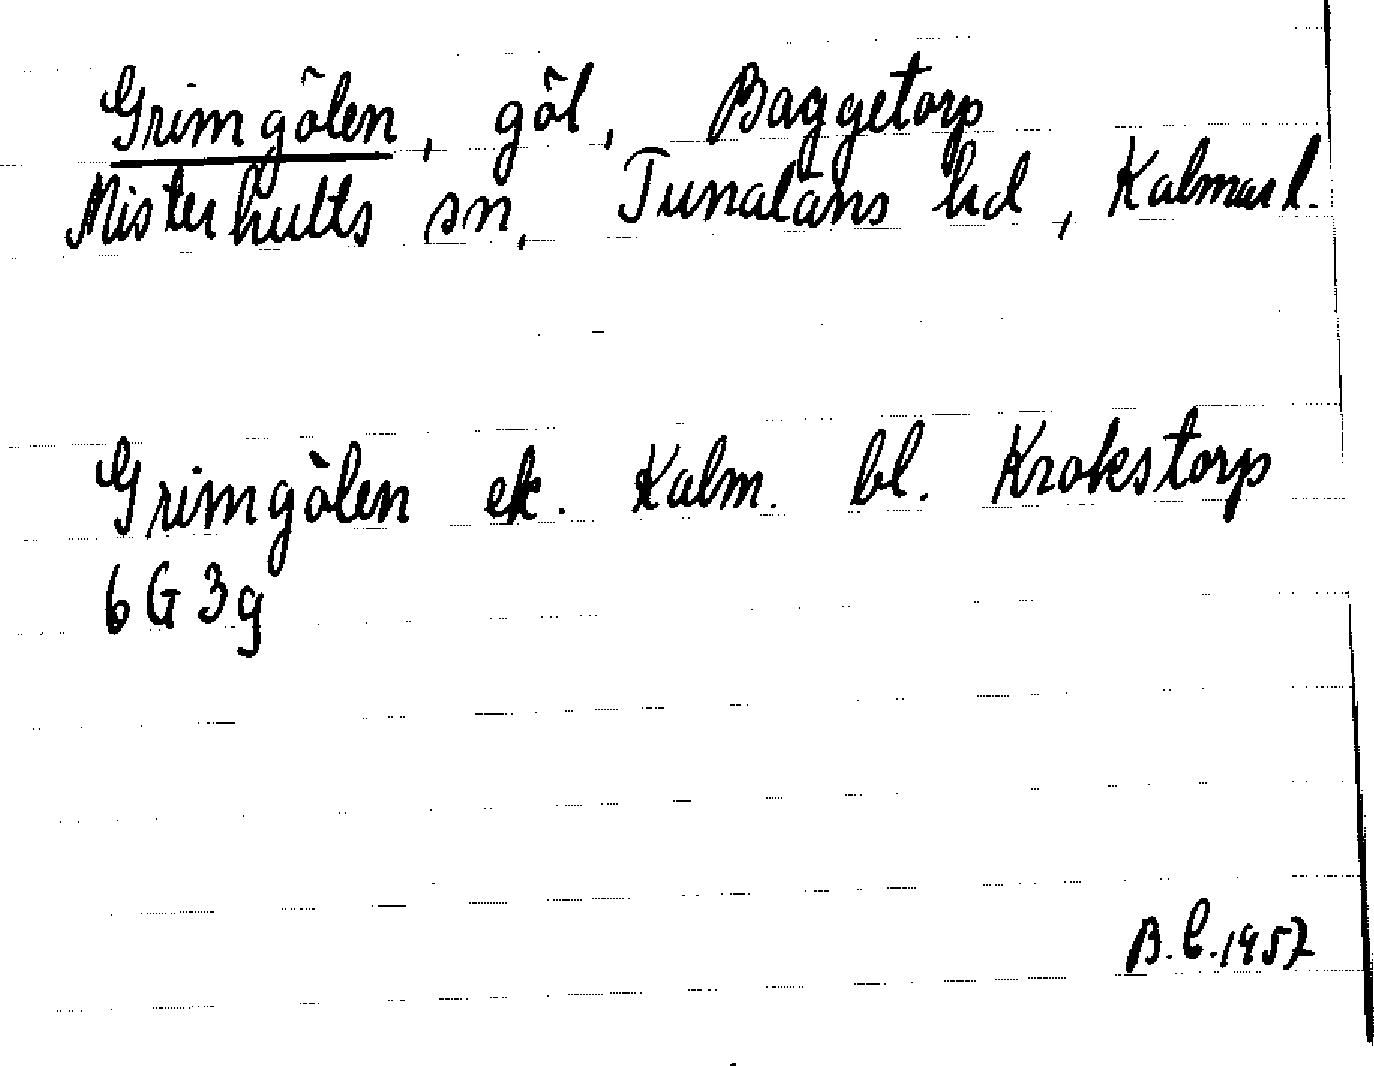 Grimgölen, göl, Baggetorp
Misterhults sn, Tunaläns hd, Kalmar l.
Grimgölen ek. Kalm. bl. Krokstorp
6 G 3g
B.C. 1957